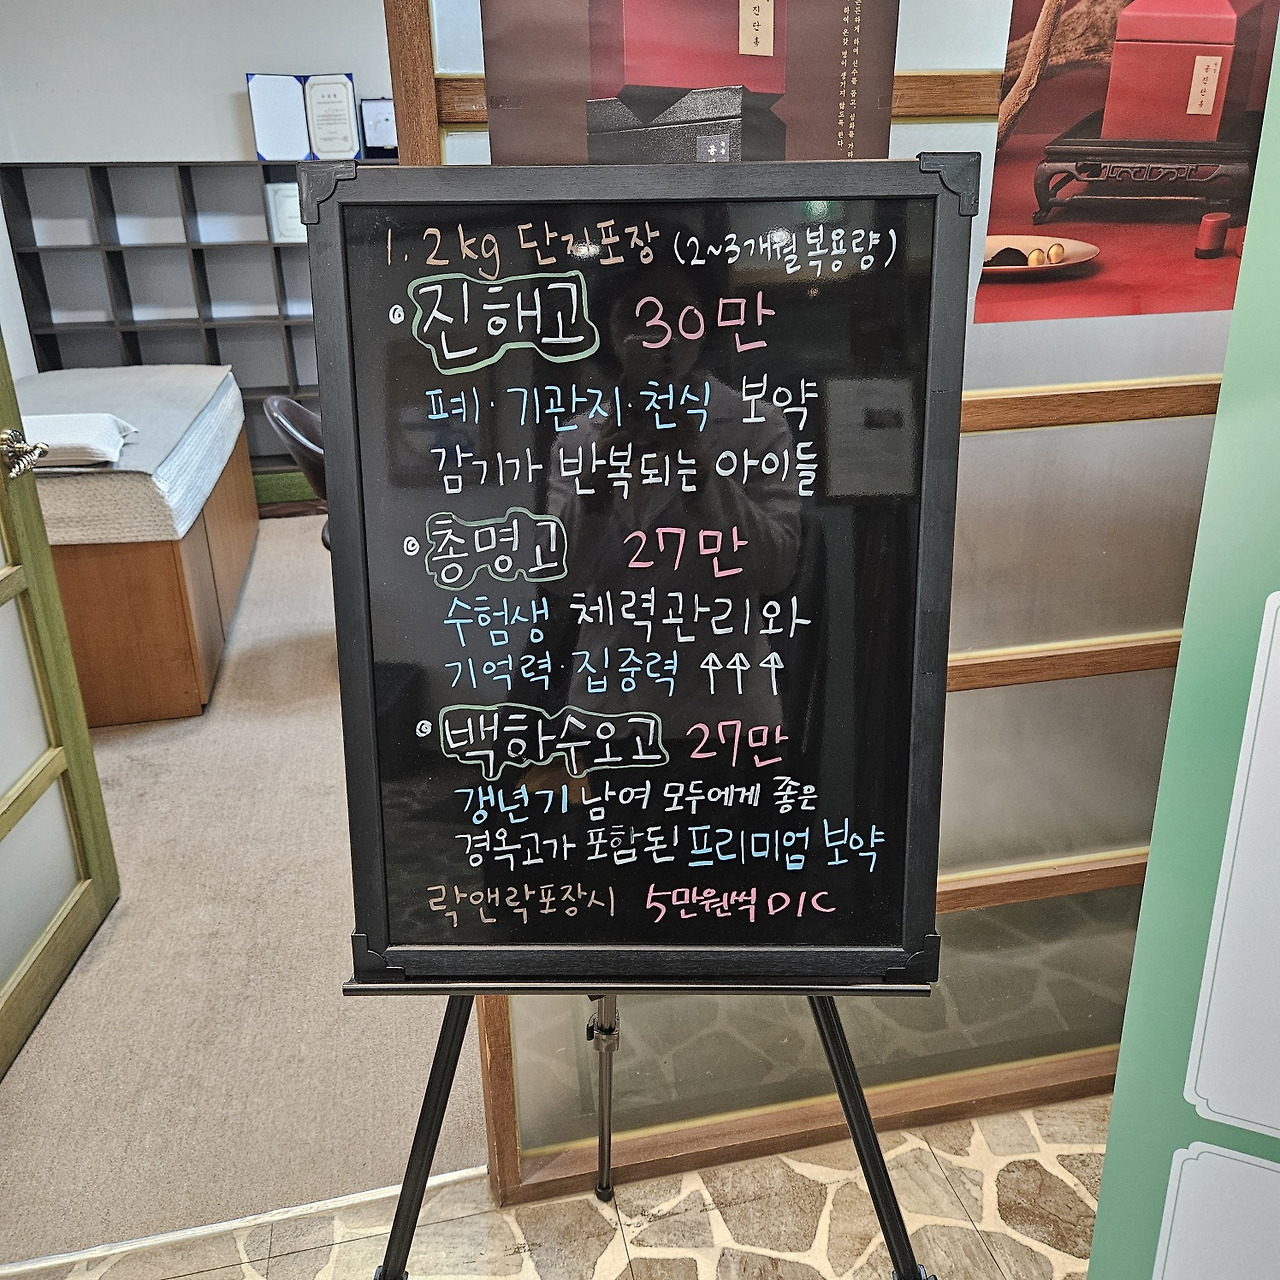 1.2kg 단지포장 (2~3개월 복용량)
진해고 30만
폐·기관지·천식 보약
감기가 반복되는 아이들
총명고 27만
수험생 체력관리와
기억력·집중력 ↑↑↑
백하수오고 27만
갱년기 남여 모두에게 좋은
경옥고가 포함된 프리미엄 보약
락앤락포장시 5만원씩 D/C